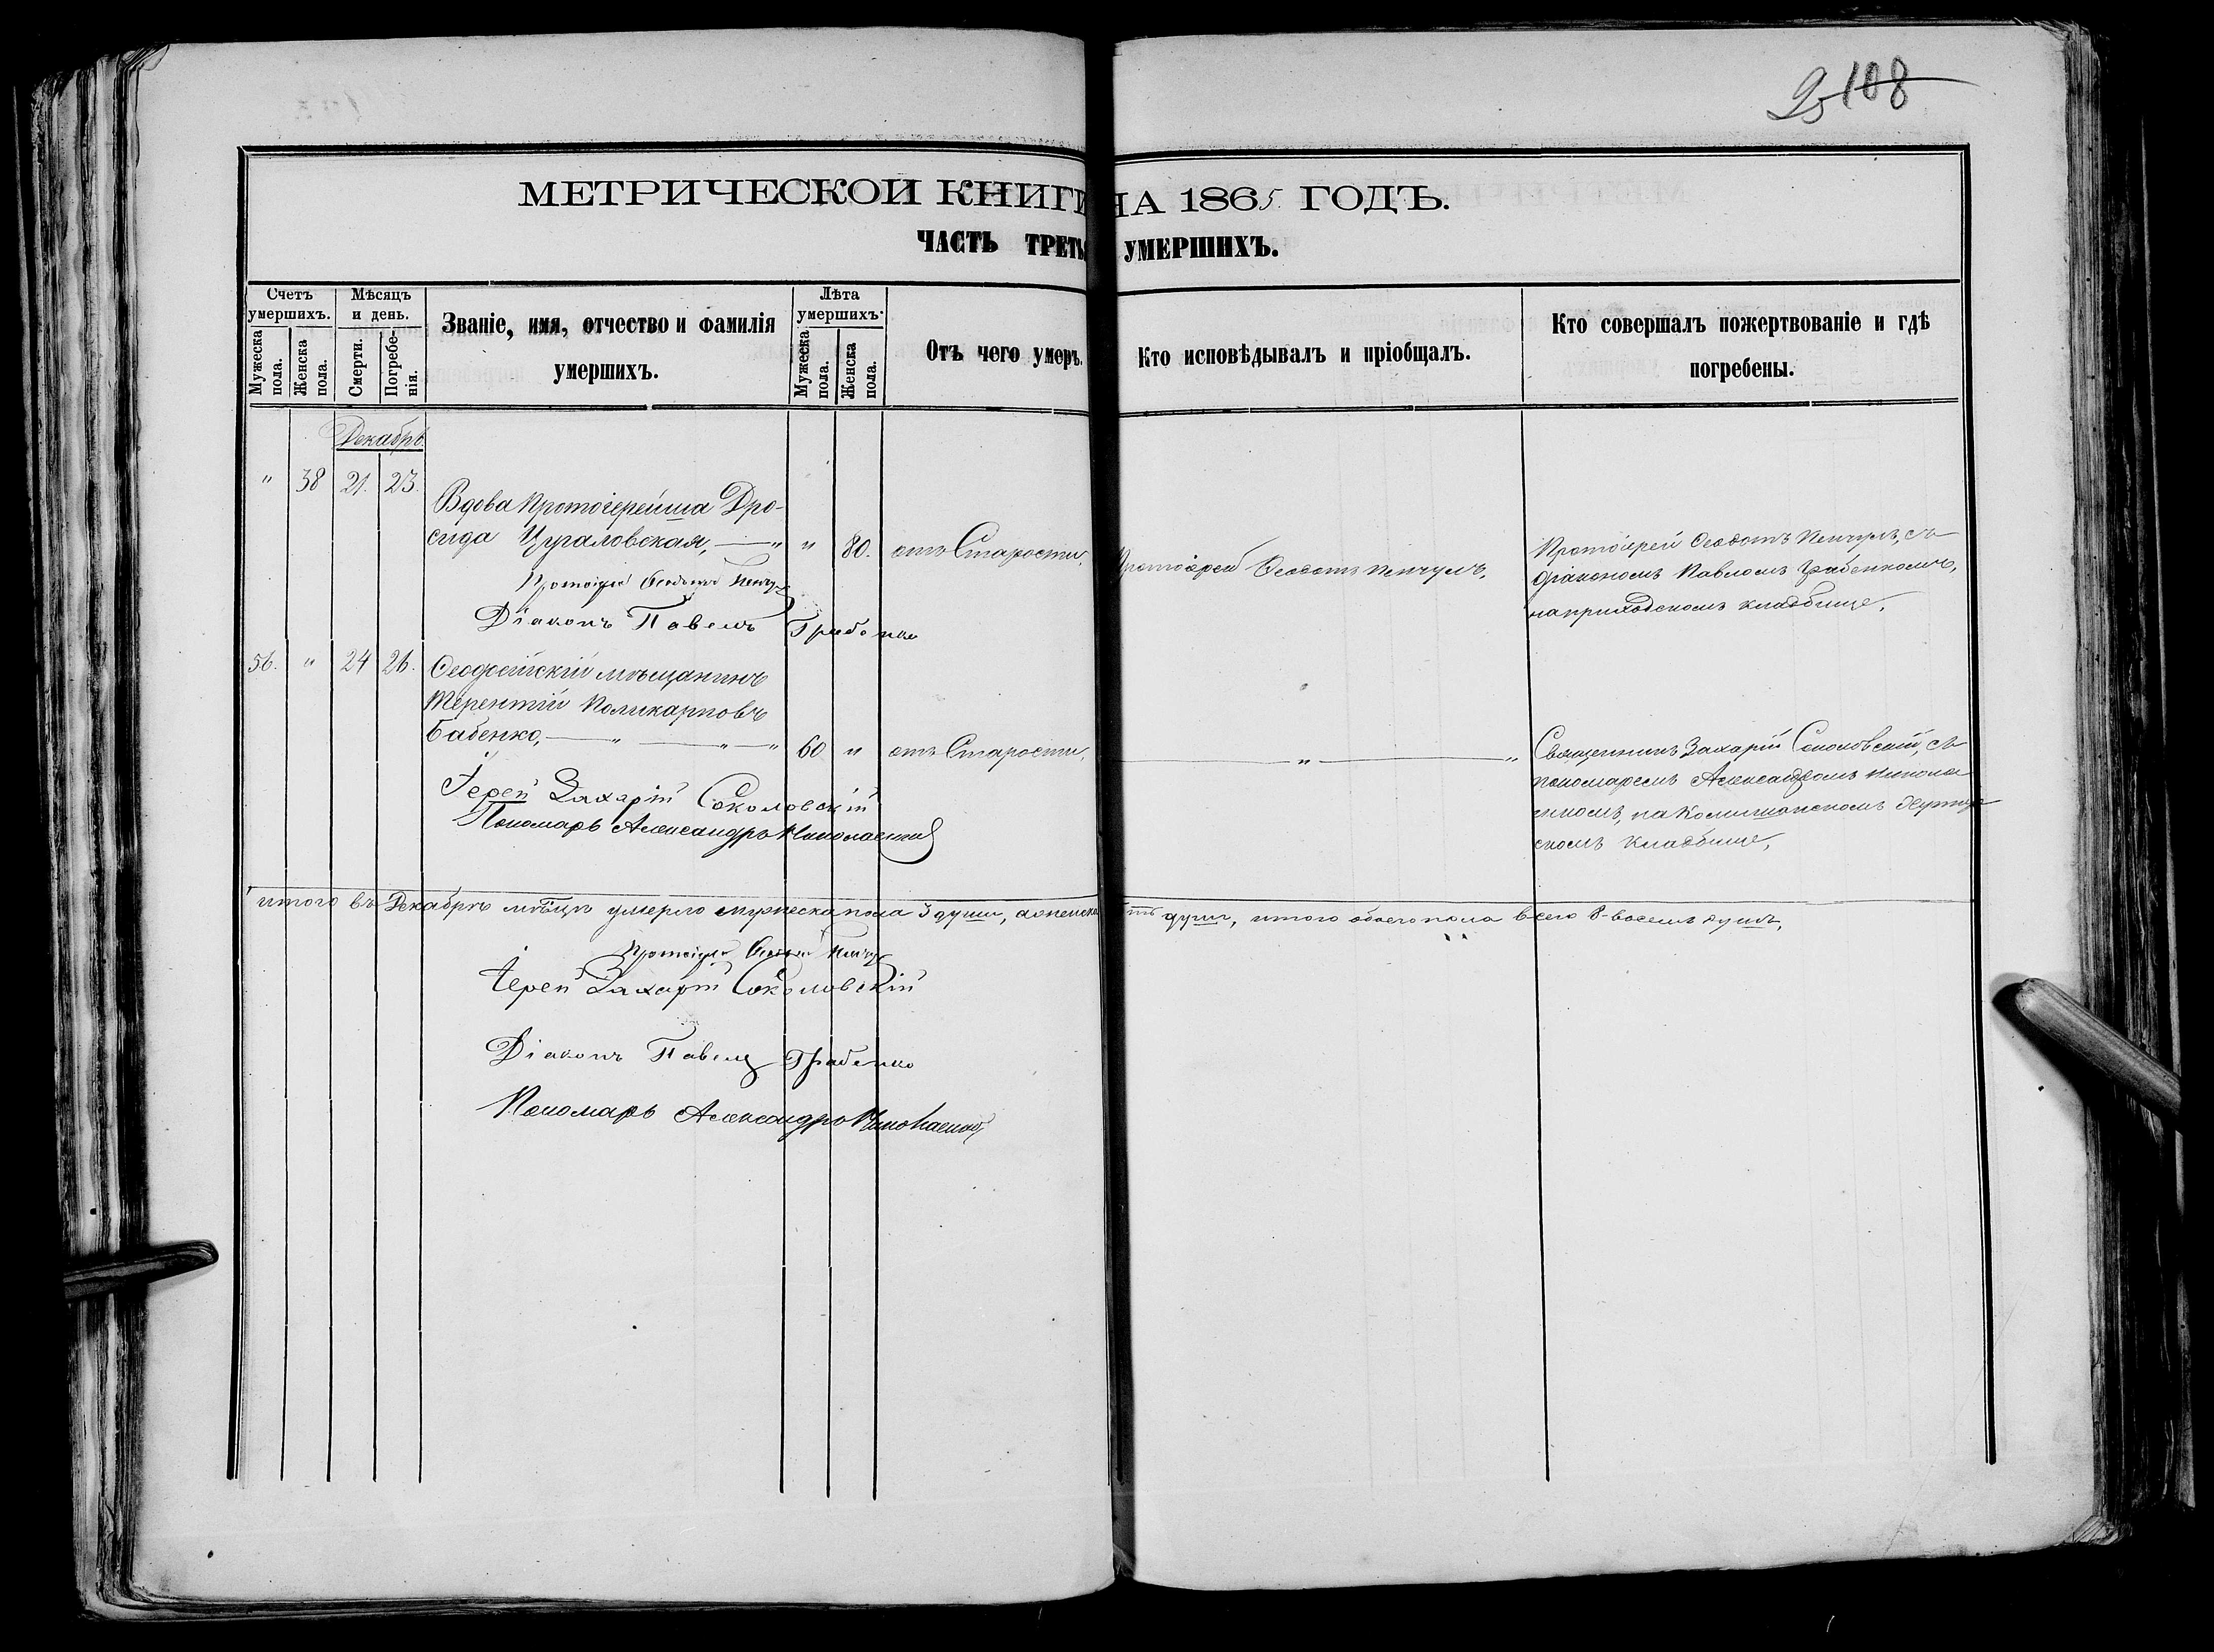 25 108
МЕТРИЧЕСКОЙ КНИГИ НА 1865 ГОДЪ.
ЧАСТЬ ТРЕТЬ УМЕРШИХЪ.
Счетъ умершихъ.
Мужеска пола.
Женска пола.
Мѣсяцъ и день.
Смерти.
Погребенія.
Званіе, имя, отчество и фамилія
умершихъ.
Лѣта умершихъ.
Мужеска пола.
Женска пола.
Отъ чего умеръ.
Кто исповѣдывалъ и пріобщалъ.
Кто совершалъ пожертвованіе и гдѣ
погребены.
Декабрь.
" 38 21. 23.
Вдова Протоіерейша Дро-
сида Цугаловская, — " " 80. отъ Старости,
Протоіерей Ѳеодотъ Кенчулъ,
Протоіерей Ѳеодотъ Кенчулъ, съ
діакономъ Павломъ Грабенкомъ,
на приходскомъ кладбище.
Протоіерей Ѳеодотъ Кенчул
Діаконъ Павелъ Грабенко
56. " 24 26. Ѳеодосійскій мѣщанинъ
Терентій Поликарповъ
Бабенко, — " — " — " 60 " отъ Старости,
— " — "
Священникъ Захарій Соколовскій, съ
пономаремъ Александромъ Никола
скимъ, на хутор
скомъ кладбище,
Іерей Захарій Соколовскій
Пономарь Александръ Николаевскій
итого въ Декабрѣ мѣсцѣ умерло мужеска пола 3 души, а женска пять душъ, итого обоего пола всего 8-восемь душъ,
Протоіерей Ѳеодотъ Кенчул
Іерей Захарій Соколовскій
Діаконъ Павелъ Грабенко
Пономарь Александръ Николаевскій